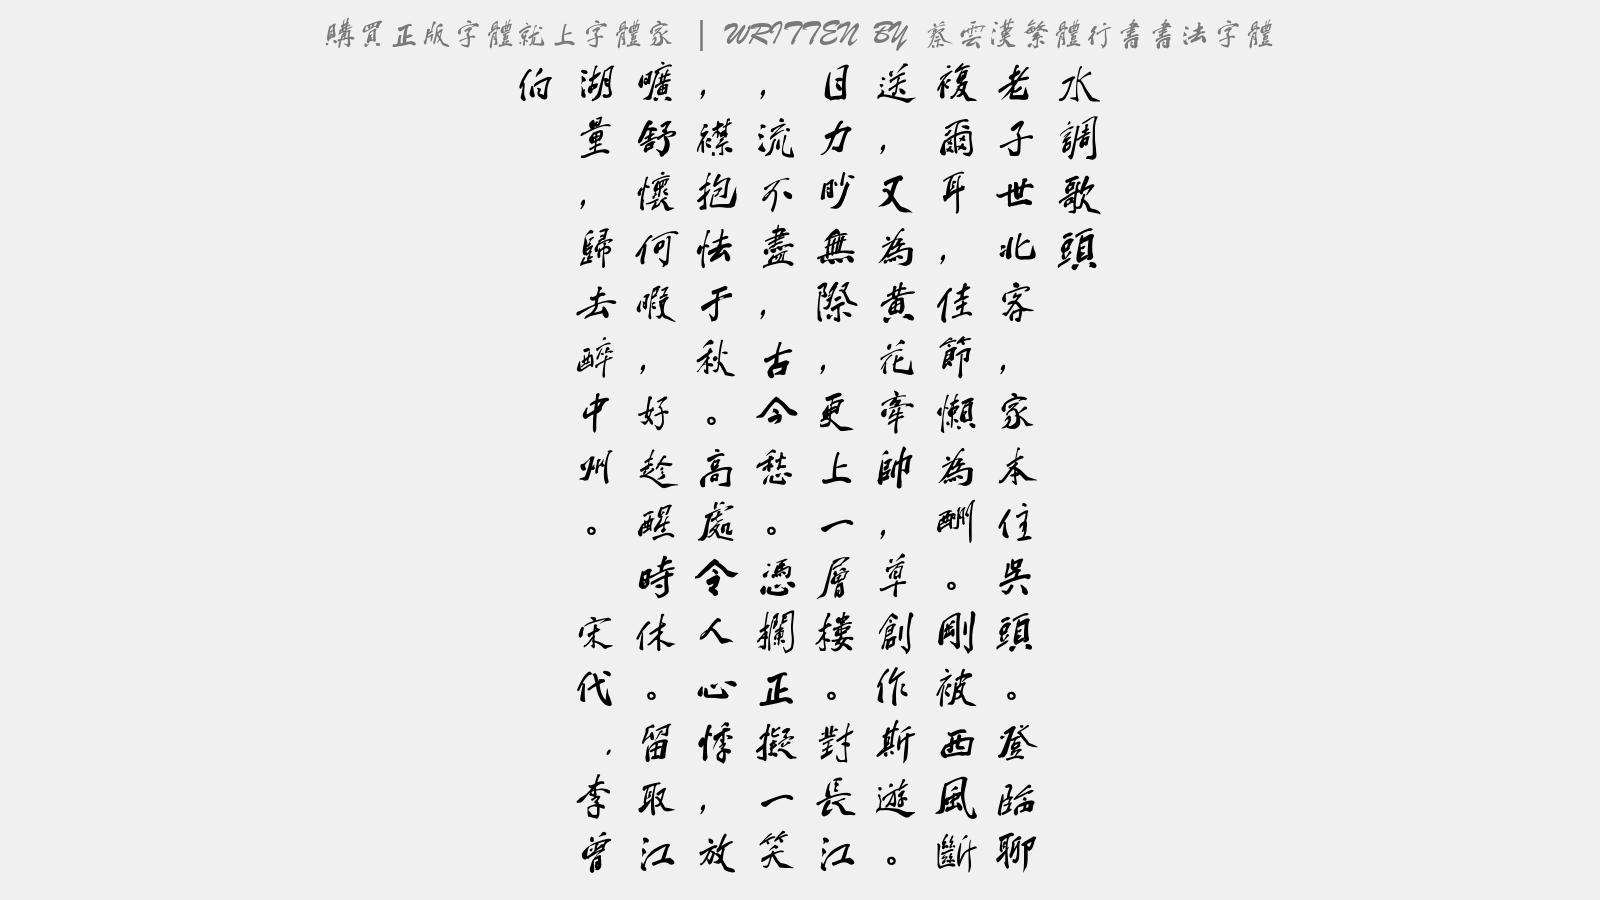 購買正版字體就上字體家 | WRITTEN BY 蔡雲漢繁體行書書法字體
水調歌頭
老子世北客，家本住吳頭。登臨聊
複爾耳，佳節懶為酬。剛被西風斷
送，又為黃花牽帥，草創作斯遊。
目力眇無際，更上一層樓。對長江
，流不盡，古今愁。憑欄正擬一笑
，襟抱怯于秋。高處令人心悸，放
曠舒懷何暇，好趁醒時休。留取江
湖量，歸去醉中州。 宋代.李曾
伯